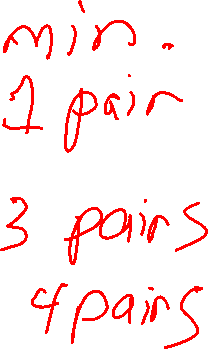 min.
1 pair
3 pairs
4 pairs